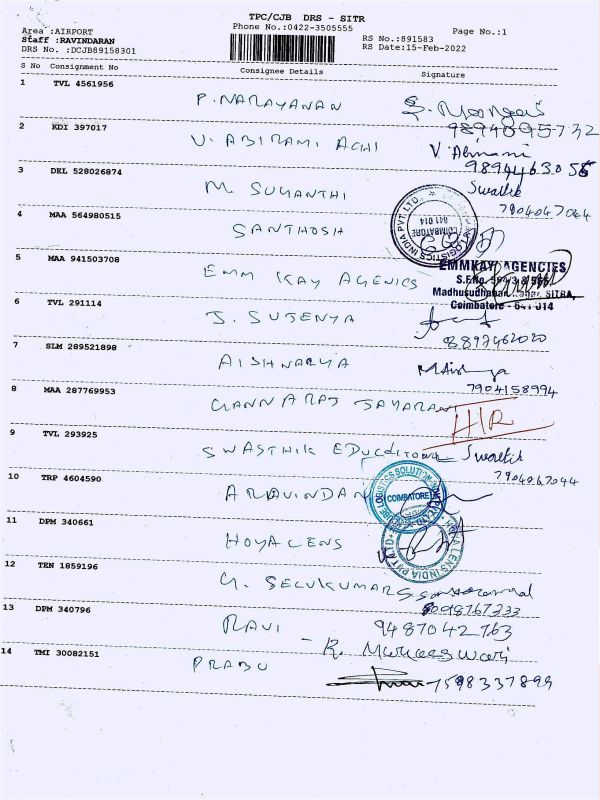 TPC/CJB DRS - SITR
Phone No.:0422-3505555
Page No.:1
Area :AIRPORT
Staff :RAVINDARAN
DRS No. :DCJB89158301
RS No.:891583
RS Date:15-Feb-2022
S No Consignment No Consignee Details Signature
1 TVL 4561956 P. NARAYANAN
9894095732
2 KDI 397017 V. ABIRAMI ACHI V. Abirami
9894463055
3 DEL 528026874 M. SUGANTHI Swathi
7904047044
4 MAA 564980515 SANTHOSH
LOGISTICS INDIA PVT. LTD.
COIMBATORE
641 014
5 MAA 941503708 EMM KAY AGENCIES
EMMKAY AGENCIES
Madhusudhanan Nagar, SITRA,
Coimbatore - 641 014
6 TVL 291114 S. SUJENYA
8897462020
7 SLM 289521898 AISHWARYA
7904158994
8 MAA 287769953 GANNARAJ JAYARAN H/R
9 TVL 293925 SWASTHIK Swathi
7904047044
10 TRP 4604590 ARAVINDAN
COIMBATORE
11 DPM 340661 HOYA LENS
HOYA LENS INDIA PVT LTD
12 TEN 1859196 G. SELVKUMAR
9098767333
13 DPM 340796 RAVI 9487042763
- R. Muneeswari
14 TMI 30082151 PRABU
7598337899